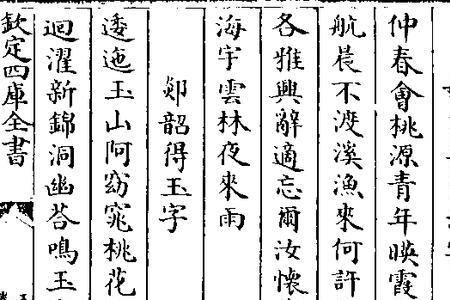 仲春會桃源青年暎霞
航晨不渡溪漁來何許
各雅興辭適忘爾汝懷
海宇雲林夜來雨
郯韶得玉字
逶迤玉山阿窈窕桃花
迴濯新錦洞幽荅鳴玉
欽定四庫全書